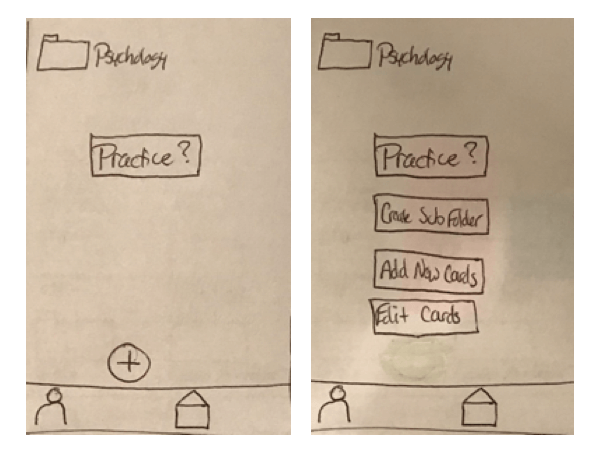 Psychology
Practice?
+
Psychology
Practice?
Create Sub Folder
Add New Cards
Edit Cards